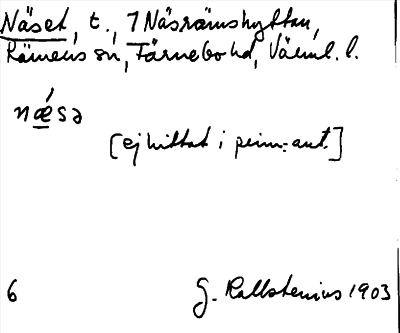 Näset, t., 7 Näsrämshyttan,
Rämens sn, Färnebo hd, Värml. l.
nǽsə
[ej hittat i prim:ant.]
6 G. Kallstenius 1903